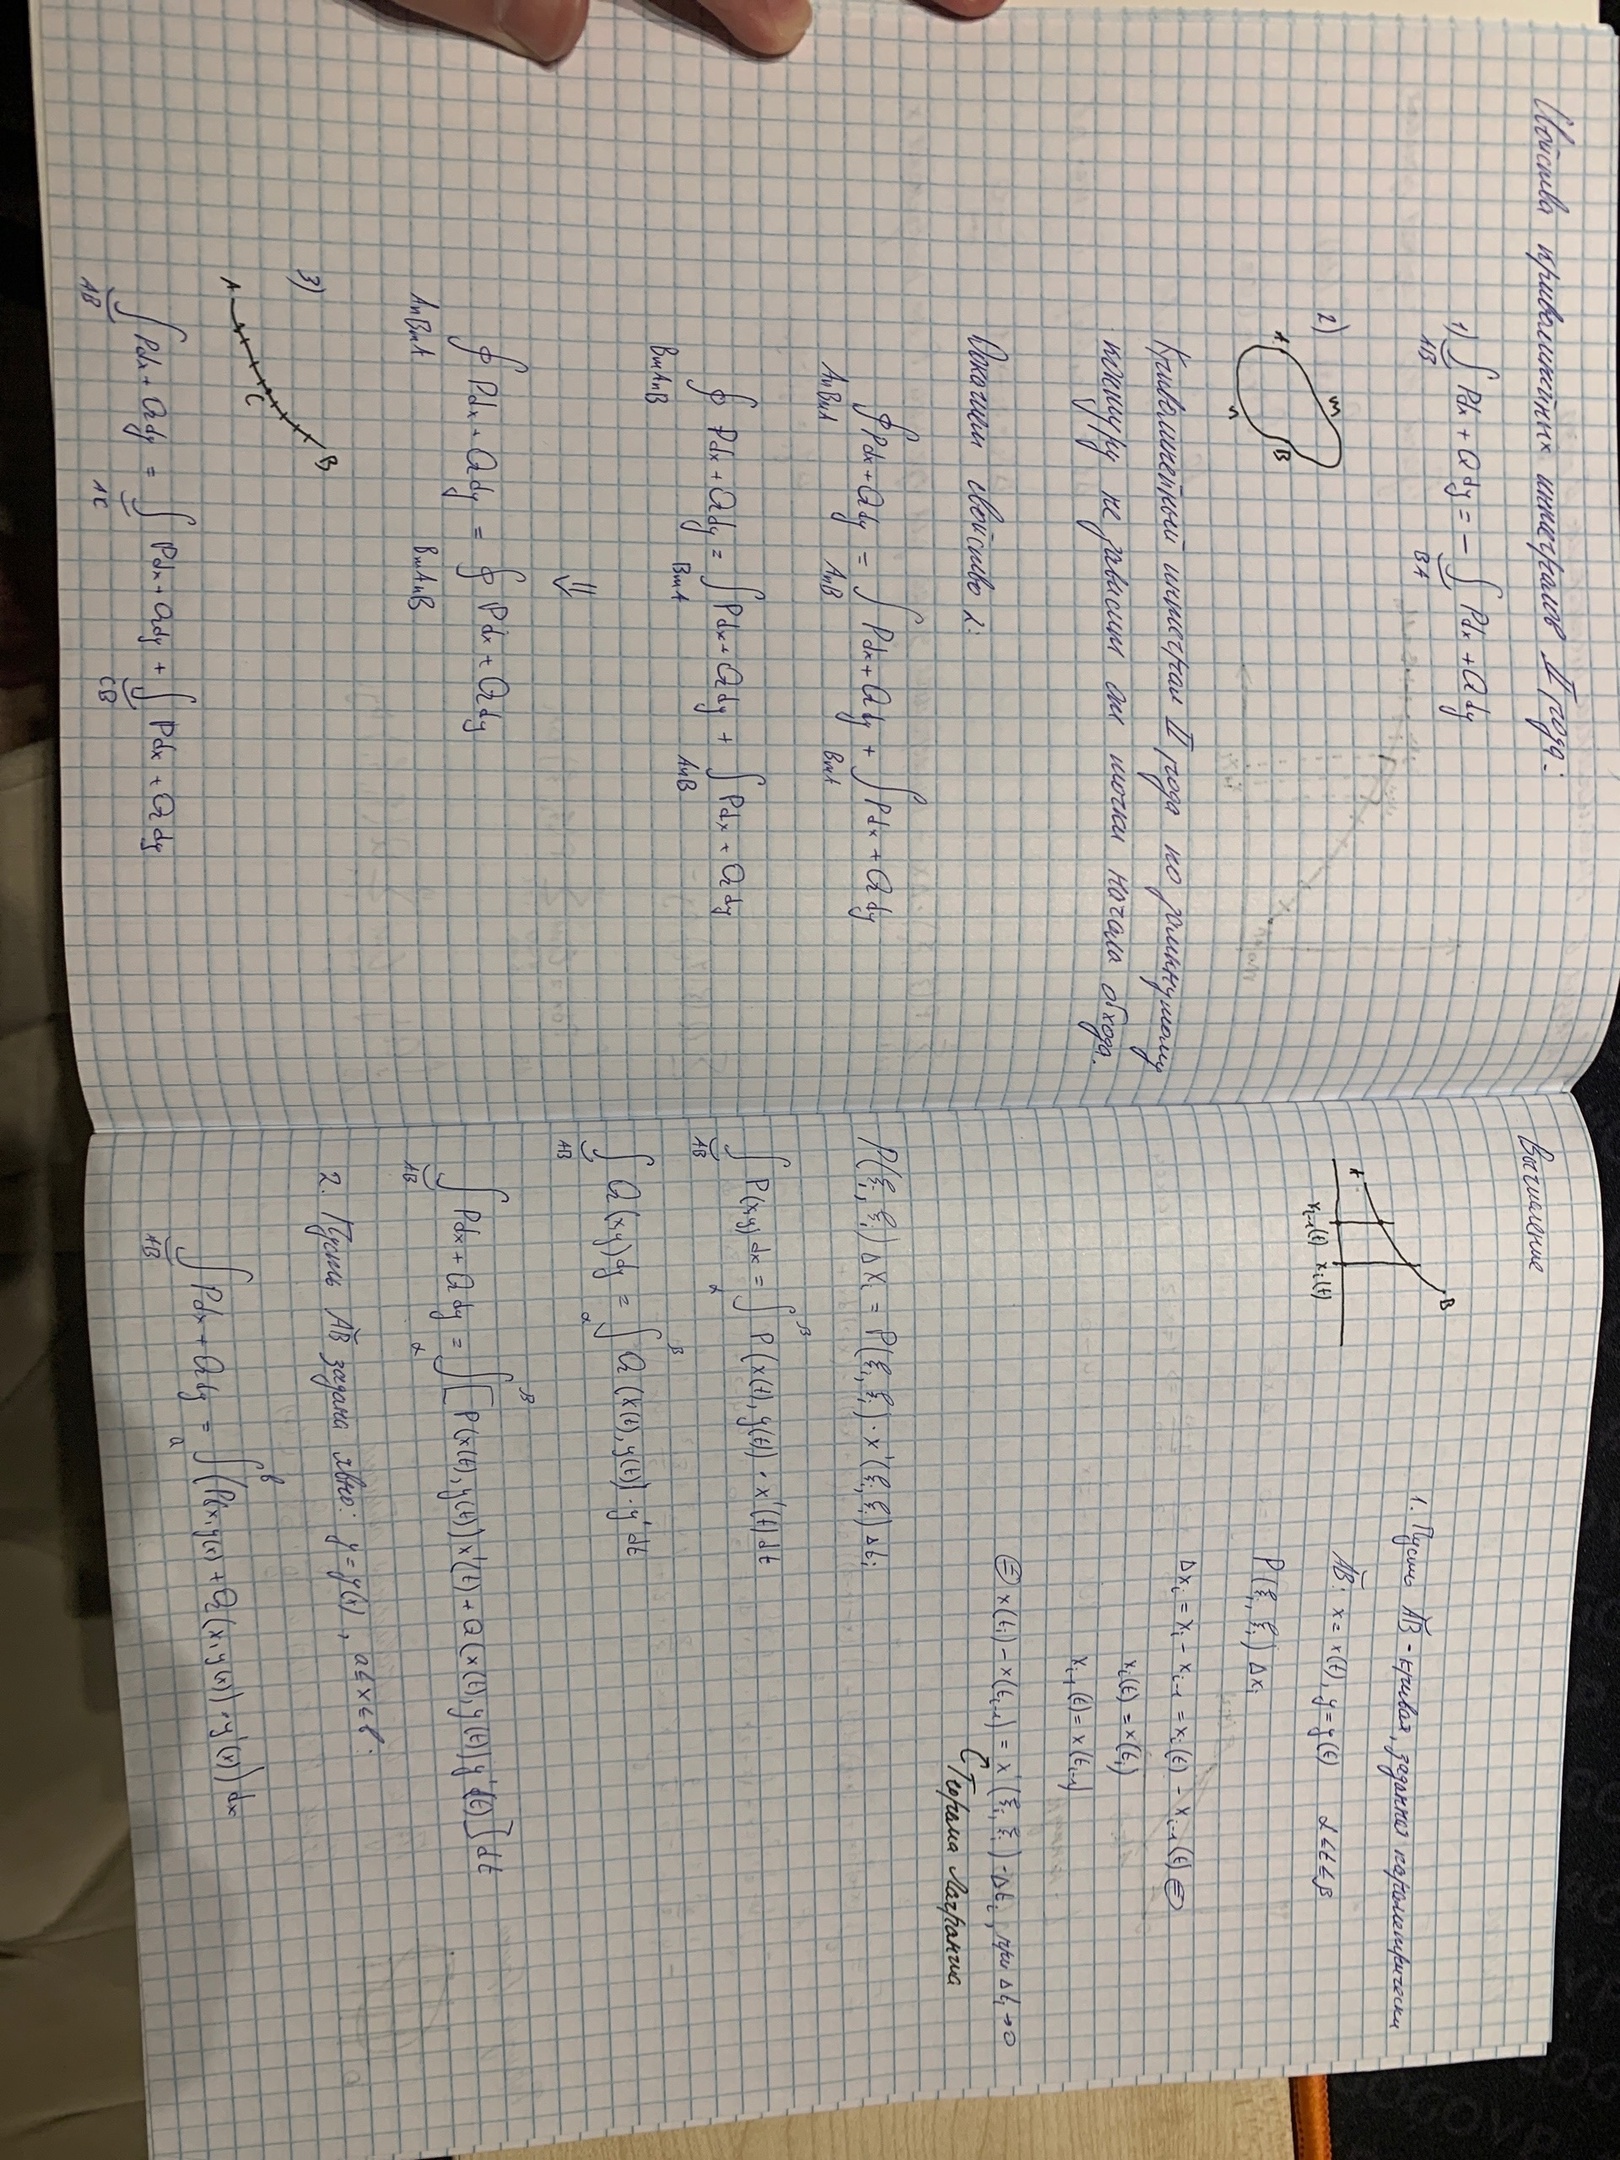 Свойства криволинейных интегралов II рода:
1) ∫ Pdx + Q dy = - ∫ Pdx + Q dy
AB BA
2)
m
A B
n
Криволинейный интеграл II рода по замкнутому
контуру не зависит от точки начала обхода.
Докажем свойство 2:
∮ Pdx + Q dy = ∫ Pdx + Q dy + ∫ Pdx + Q dy
AnBmA AnB BmA
∮ Pdx + Q dy = ∫ Pdx + Q dy + ∫ Pdx + Q dy
BmAnB BmA AnB
⇓
∮ Pdx + Q dy = ∮ Pdx + Q dy
AnBmA BmAnB
3)
A C B
∫ Pdx + Q dy = ∫ Pdx + Q dy + ∫ Pdx + Q dy
AB AC CB
Вычисление
A B
xᵢ₋₁(t) xᵢ(t)
1. Пусть AB - кривая, заданная параметрически
AB: x = x(t), y = y(t) α ≤ t ≤ β
P(ξᵢ, ξᵢ) Δxᵢ
Δxᵢ = xᵢ - xᵢ₋₁ = xᵢ(t) - xᵢ₋₁(t) ⊜
xᵢ(t) = x(tᵢ)
xᵢ₋₁(t) = x(tᵢ₋₁)
⊜ x(tᵢ) - x(tᵢ₋₁) = x'(ξᵢ, ξᵢ) · Δtᵢ, при Δtᵢ → 0
Теорема Лагранжа
P(ξᵢ, ξᵢ) Δxᵢ = P(ξᵢ, ξᵢ) · x'(ξᵢ, ξᵢ) Δtᵢ
β
∫ P(x,y) dx = ∫ P(x(t), y(t)) · x'(t) dt
AB α
β
∫ Q(x,y) dy = ∫ Q(x(t), y(t)) · y' dt
AB α
β
∫ Pdx + Q dy = ∫ [P(x(t), y(t)) x'(t) + Q(x(t), y(t)) y'(t)] dt
AB α
2. Пусть AB задана явно: y = y(x), a ≤ x ≤ b:
b
∫ Pdx + Q dy = ∫ (P(x, y(x) + Q(x, y(x)) · y'(x)) dx
AB a